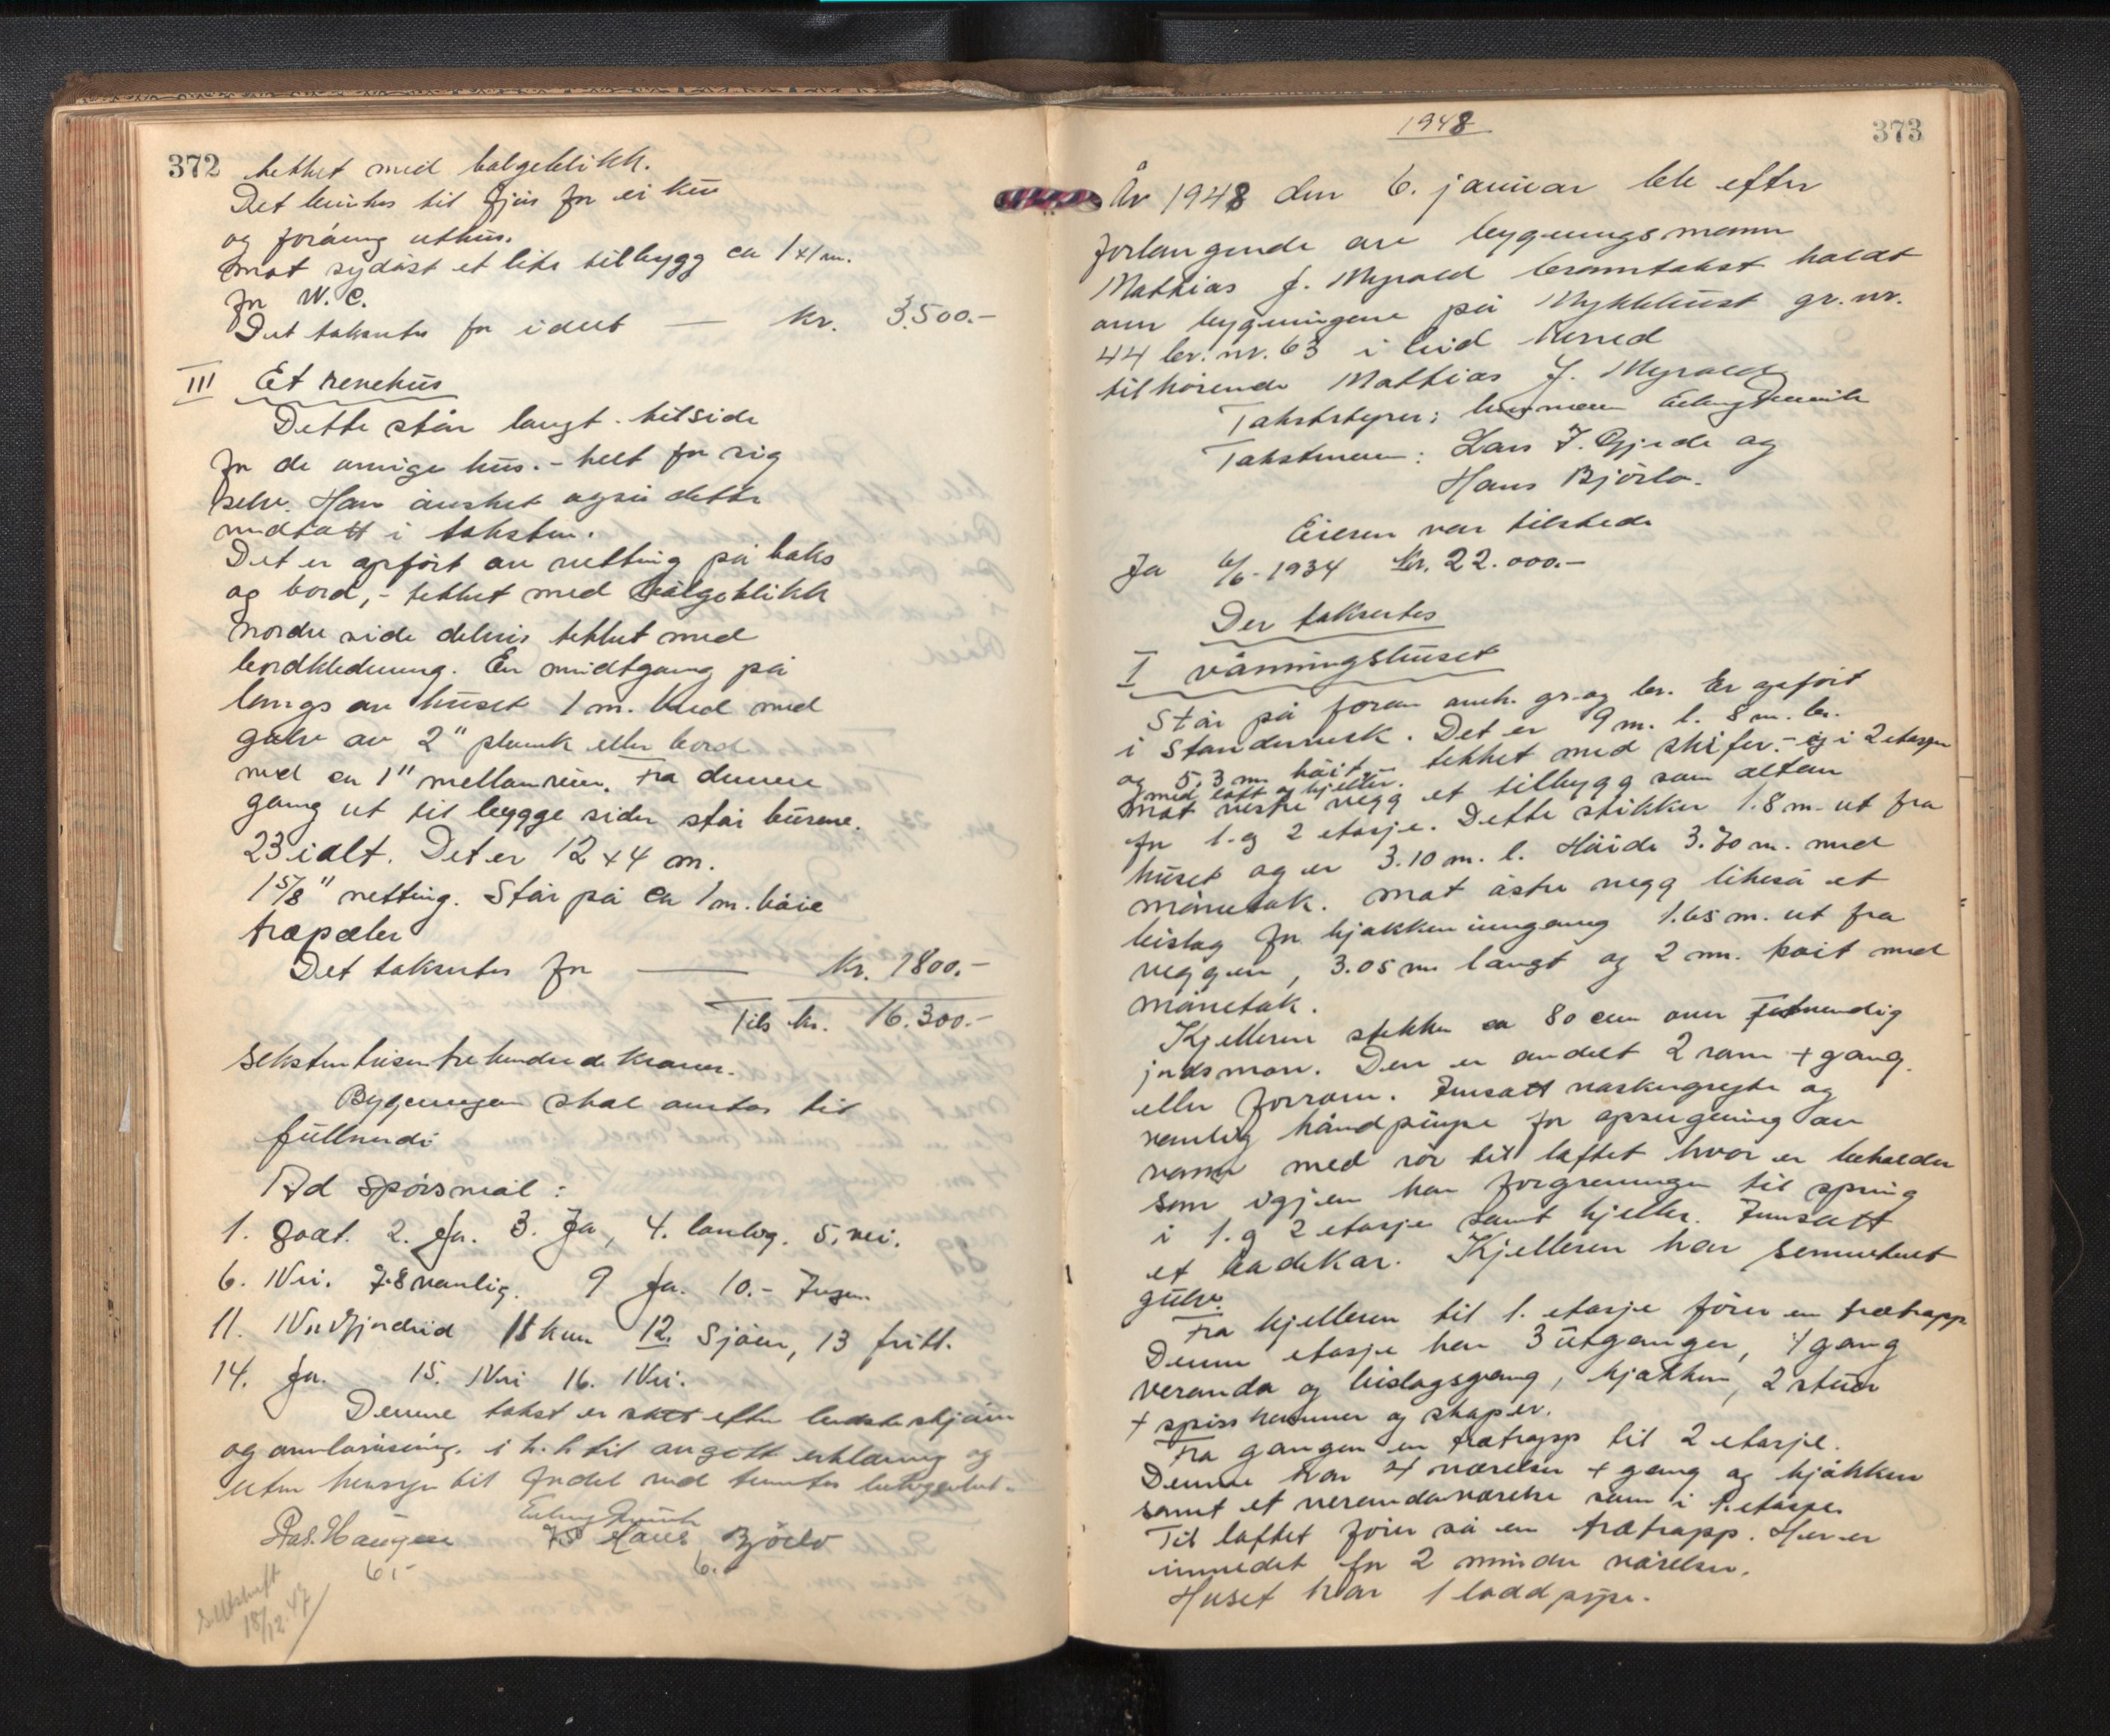 372
tekket med bølgeblikk.
Det brukes til fjøs for ei ku
og foråvrig uthus.
Mot sydøst et lite tilbygg ca 1x1 m.
for W.C.
Det takseres for idelt — kr. 3.500.-
III Et revehus
Dette står langt tilside
for de øvrige hus. - helt for sig
selv. Han ønsket også dette
medtatt i taksten.
Det er opført av netting på
og bord, - tekket med bølgeblikk
Nordre side delvis tekket med
bordkledning. En midtgang på
langs av huset 1 m. bred med
gulv av 2" plank eller bord
med ca 1" mellomrum. Fra denne
gang ut til begge sider står burene.
23 ialt. Det er 12 x 4 m.
1 5/8" netting. Står på ca 1 m. høie
træpæler
Det takseres for — kr. 1800.-
Tils kr. 16.300.-
Seksten tusen tre hundrede kroner.
Bygningen skal antas til
fullverdi
Ad spørsmål:
1. godt. 2. Ja. 3. Ja, 4. landv. 5. nei.
6. Nei. 7-8 vanlig. 9 Ja. 10. - Ingen
11. Nei 11 kum 12. Sjøen, 13 fritt.
14. Ja. 15. Nei 16. Nei.
Denne takst er satt efter beste skjønn
og overbevisning. i h. h. til avgitt erklæring og
uten hensyn til fordel ved bebyggelse.
Erling
Ras. Haugen Hans Bjørlo
6,- 6.-
S. Utskrift
18/12.47
1948
373
År 1948 den 6. januar ble efter
forlangende av bygningsmann
Mathias J. Myrold branntakst holdt
over bygningene på Myklebust gr. nr.
44 br. nr. 63 i Eid herred
tilhørende Mathias J. Myrold
Takststyrer: lensmann Erling
Takstmenn: Lars J. Gjerde og
Hans Bjørlo.
Eieren var tilstede
Ja 6/6-1934 Kr. 22.000.-
Der takseres
I Våningshuset
Står på foran anf. gr. og br. Er opført
i Standerverk. Det er 9 m. l. 8 m. br.
og 5,3 m høit, - tekket med skifer. - og i 2 etasjer
med loft og kjeller.
Mot vestre vegg et tilbygg som altan
for 1. og 2 etasje. Dette stikker 1.8 m. ut fra
huset og er 3.10 m. l. Høide 3.70 m. med
mønetak. Mot østre vegg likeså et
bislag for kjøkkeninngang 1.65 m. ut fra
veggen, 3.05 m langt og 2 m. høit med
mønetak.
Kjelleren stikker ca 80 cm over
jordsmon. Den er avdelt 2 rom + gang.
eller forrom. Innsatt vaskegryte og
vanlig håndpumpe for opsugning av
vann med rør til loftet hvor er beholder
som igjen har forgreninger til spring
i 1. og 2 etasje samt kjeller. Innsatt
et badekar. Kjelleren har sementert
gulv.
Fra kjelleren til 1. etasje fører en trætrapp
Denne etasje har 3 utganger, 1 gang
veranda og bislagsgang, kjøkken, 2 stuer
+ spisskammer og skaper.
Fra gangen en trætrapp til 2 etasje.
Denne har 4 værelser + gang og kjøkken
samt et verandaværelse som i 1. etasje.
Til loftet fører så en trætrapp. Her er
innredet for 2 mindre værelser.
Huset har 1 loddpipe.